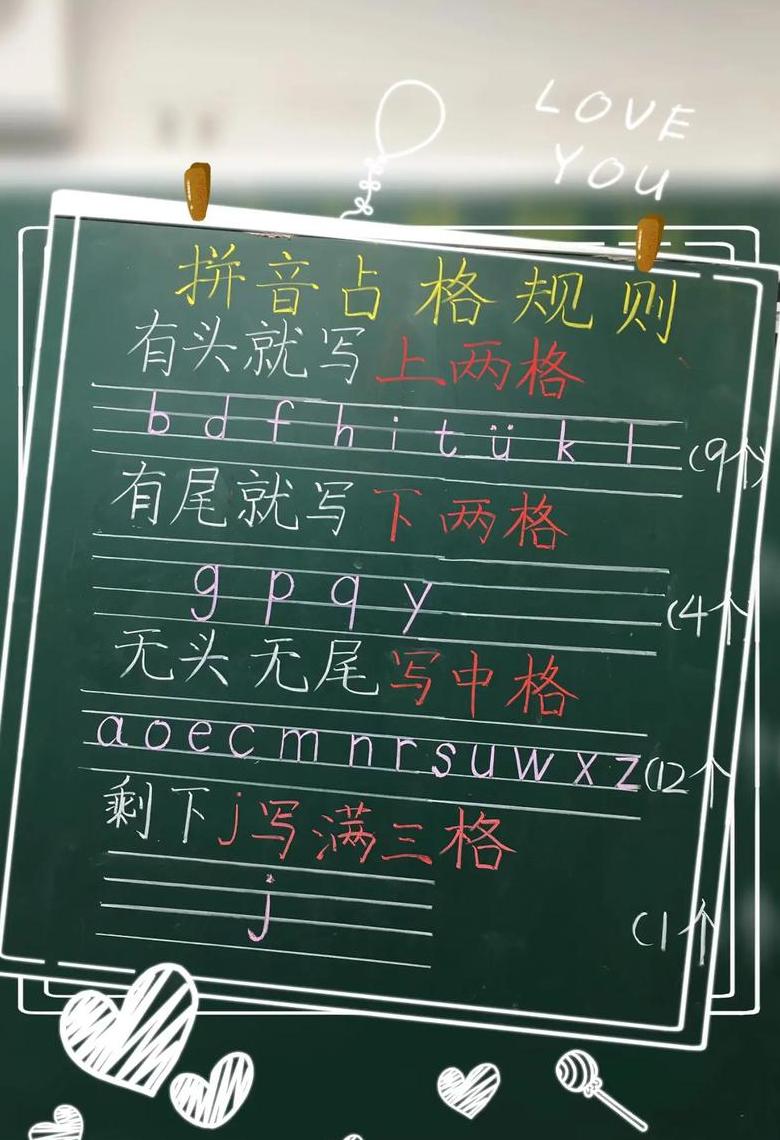 LOVE
YOU
拼音占格规则
有头就写上两格
b d f h i t ü k l (9个)
有尾就写下两格
g p q y (4个
无头无尾写中格
a o e c m n r s u w x z (12个
剩下j写满三格
j (1个